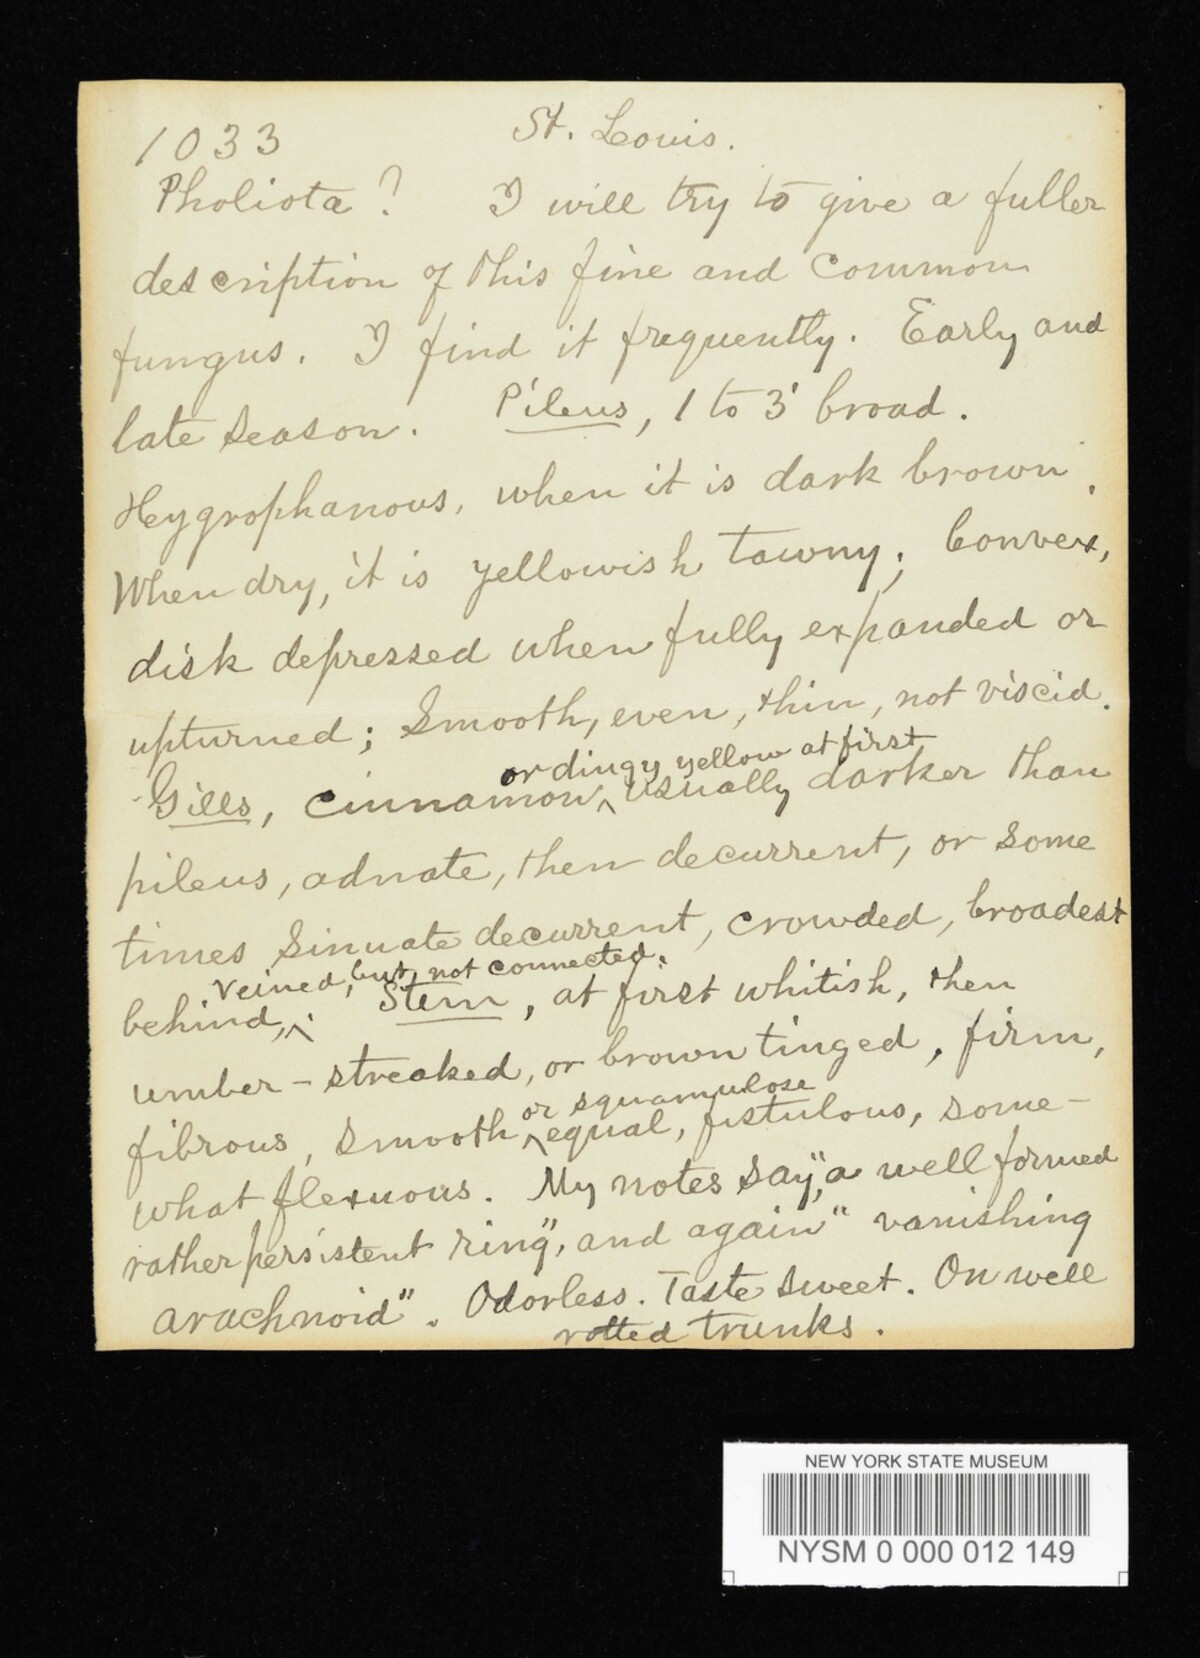 1033 St. Louis.
Pholiota? I will try to give a fuller
description of this fine and common
fungus. I find it frequently. Early and
late season. Pileus, 1 to 3' broad.
Heygrophanous, when it is dark brown.
When dry, it is yellowish tawny; Convex,
disk depressed when fully expanded or
upturned; Smooth, even, thin, not viscid.
or dingy yellow at first
Gills, cinnamon, ^ usually darker than
pileus, adnate, then decurrent, or some
times Sinuate decurrent, crowded, broadest
veined, but not connected.
behind, ^. Stem, at first whitish, then
umber-streaked, or brown tinged, firm,
or squamulose
fibrous, smooth ^ equal, fistulous, some-
what flexuous. My notes say, "a well formed
rather persistent ring", and again "vanishing
arachnoid". Odorless. Taste sweet. On well
rotted trunks.
NEW YORK STATE MUSEUM
NYSM 0 000 012 149